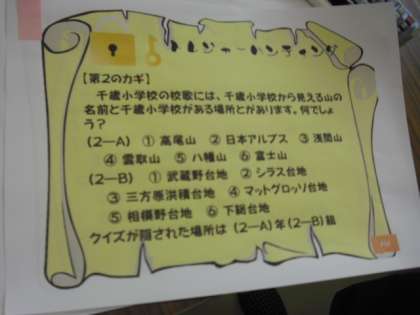 トレジャーハンティング
【第2のカギ】
千歳小学校の校歌には、千歳小学校から見える山の
名前と千歳小学校がある場所とがあります。何でしょ
う？
(2―A) ① 高尾山 ② 日本アルプス ③ 浅間山
④ 雲取山 ⑤ 八幡山 ⑥ 富士山
(2―B) ① 武蔵野台地 ② シラス台地
③ 三方原洪積台地 ④ マットグロッソ台地
⑤ 相模野台地 ⑥ 下総台地
クイズが隠された場所は (2―A) 年 (2―B) 組